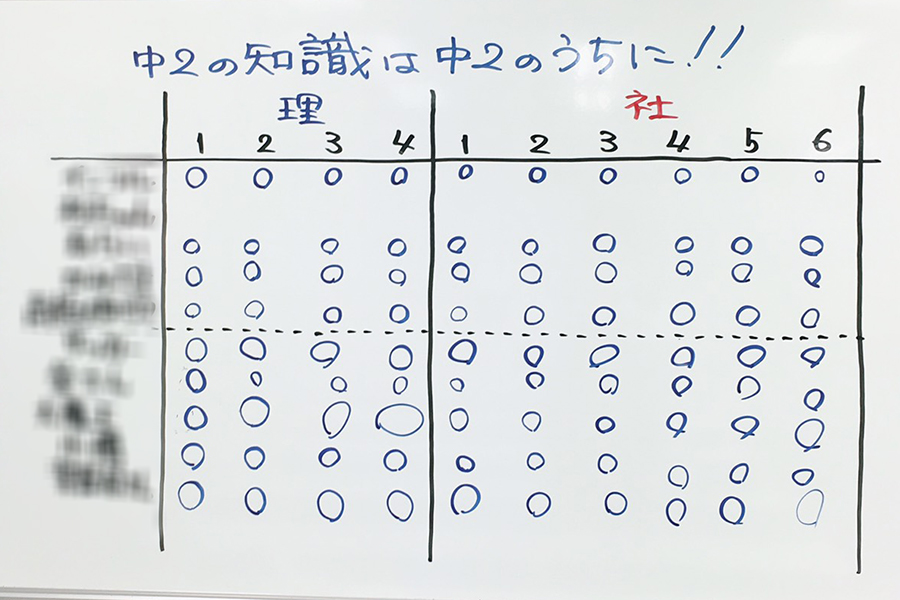 中2の知識は中2のうちに!!
理 社
1 2 3 4 1 2 3 4 5 6
○ ○ ○ ○ ○ ○ ○ ○ ○ ○
○ ○ ○ ○ ○ ○ ○ ○ ○ ○
○ ○ ○ ○ ○ ○ ○ ○ ○ ○
○ ○ ○ ○ ○ ○ ○ ○ ○ ○
○ ○ ○ ○ ○ ○ ○ ○ ○ ○
○ ○ ○ ○ ○ ○ ○ ○ ○ ○
○ ○ ○ ○ ○ ○ ○ ○ ○ ○
○ ○ ○ ○ ○ ○ ○ ○ ○ ○
○ ○ ○ ○ ○ ○ ○ ○ ○ ○